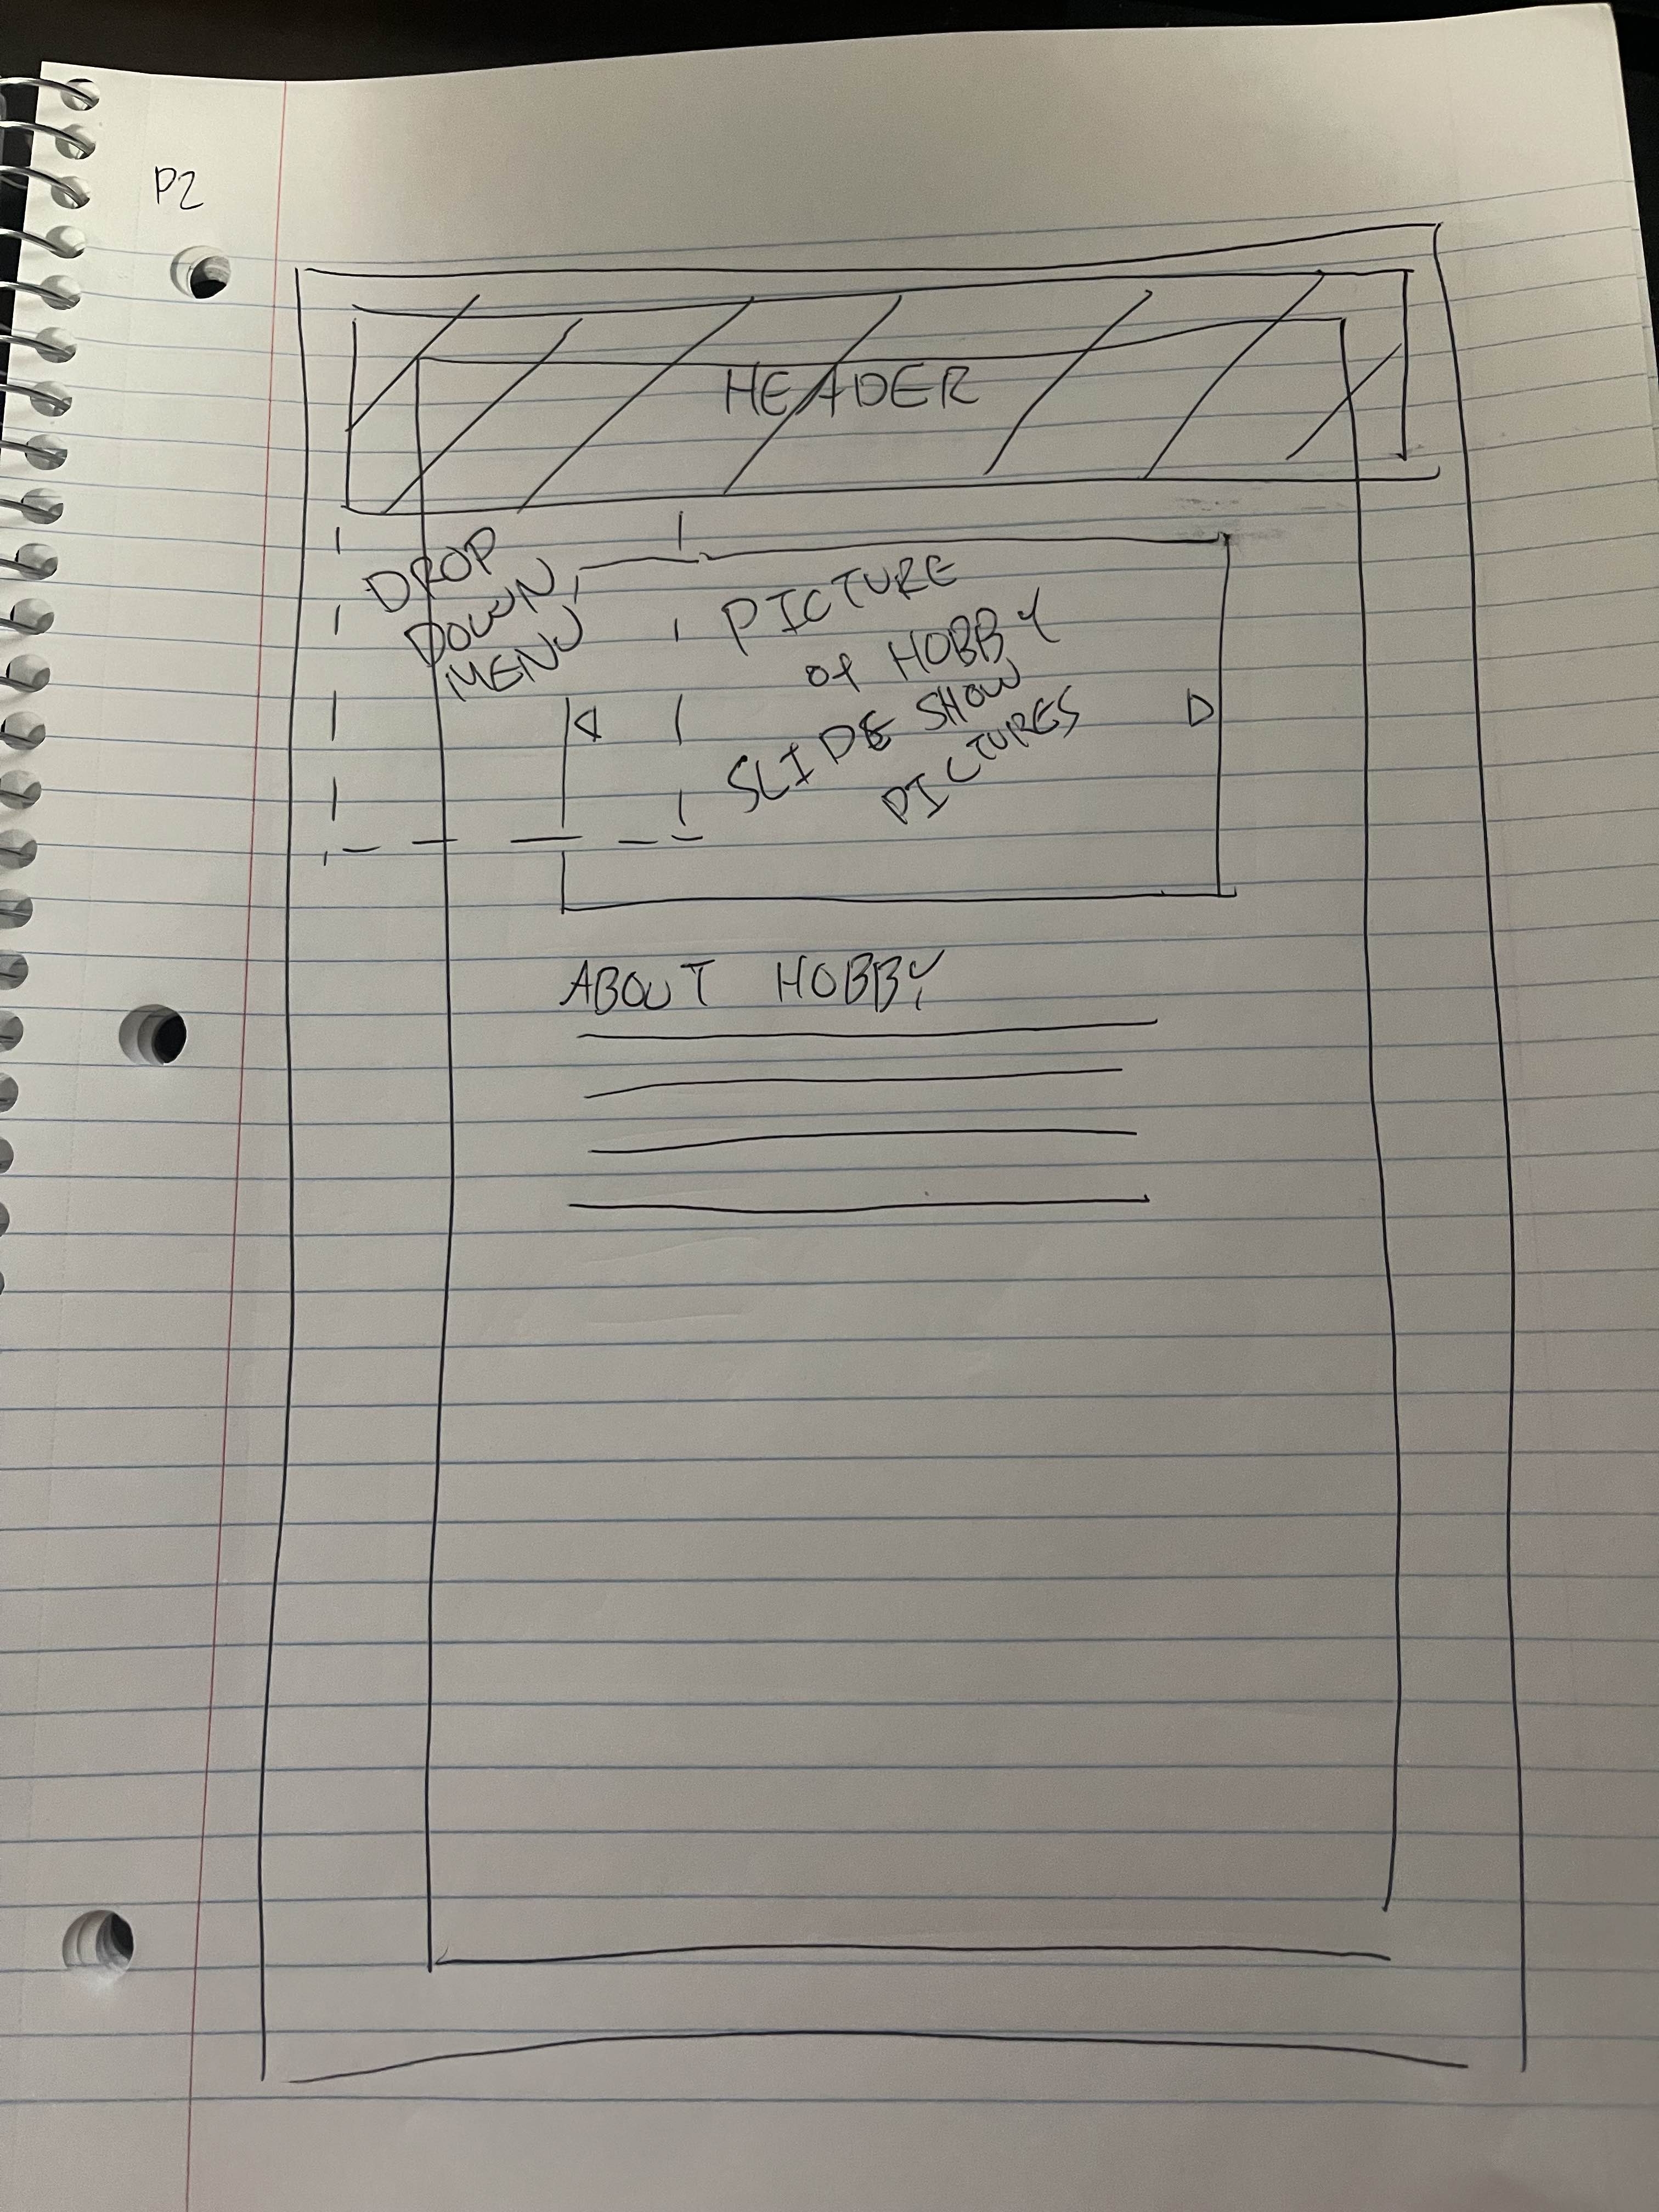 P2
HEADER
DROP
DOWN
MENU
PICTURE
of HOBBY
SLIDE SHOW
PICTURES
ABOUT HOBBY